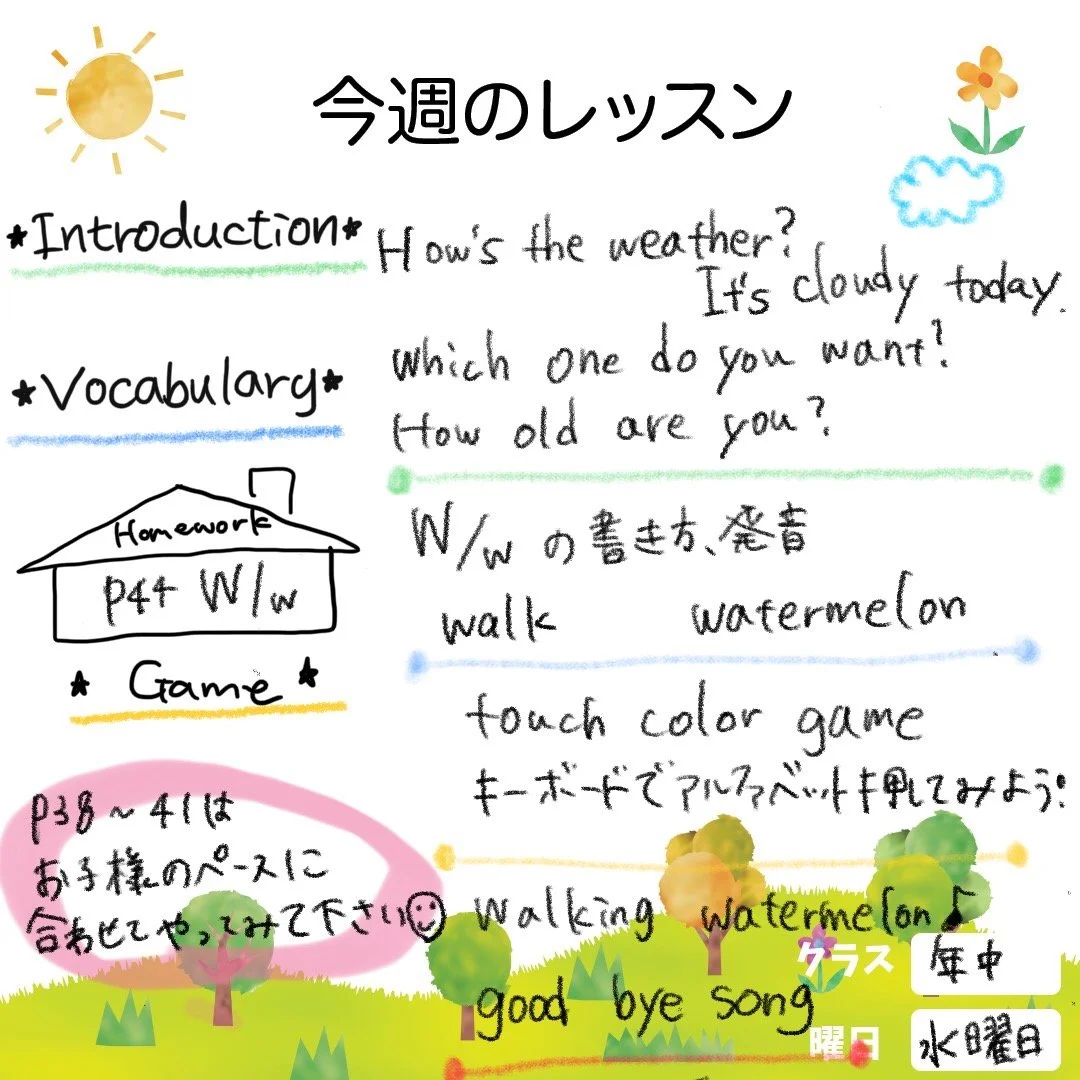 今週のレッスン
★Introduction★
How's the weather?
It's cloudy today.
Which one do you want?
How old are you?
★Vocabulary★
Homework
P44 W/w
W/wの書き方、発音
walk watermelon
★ Game ★
touch color game
キーボードでアルファベットを押してみよう!
P38~41は
お子様のペースに
合わせてやってみて下さい☺
walking watermelon♪
good bye song
クラス 年中
曜日 水曜日